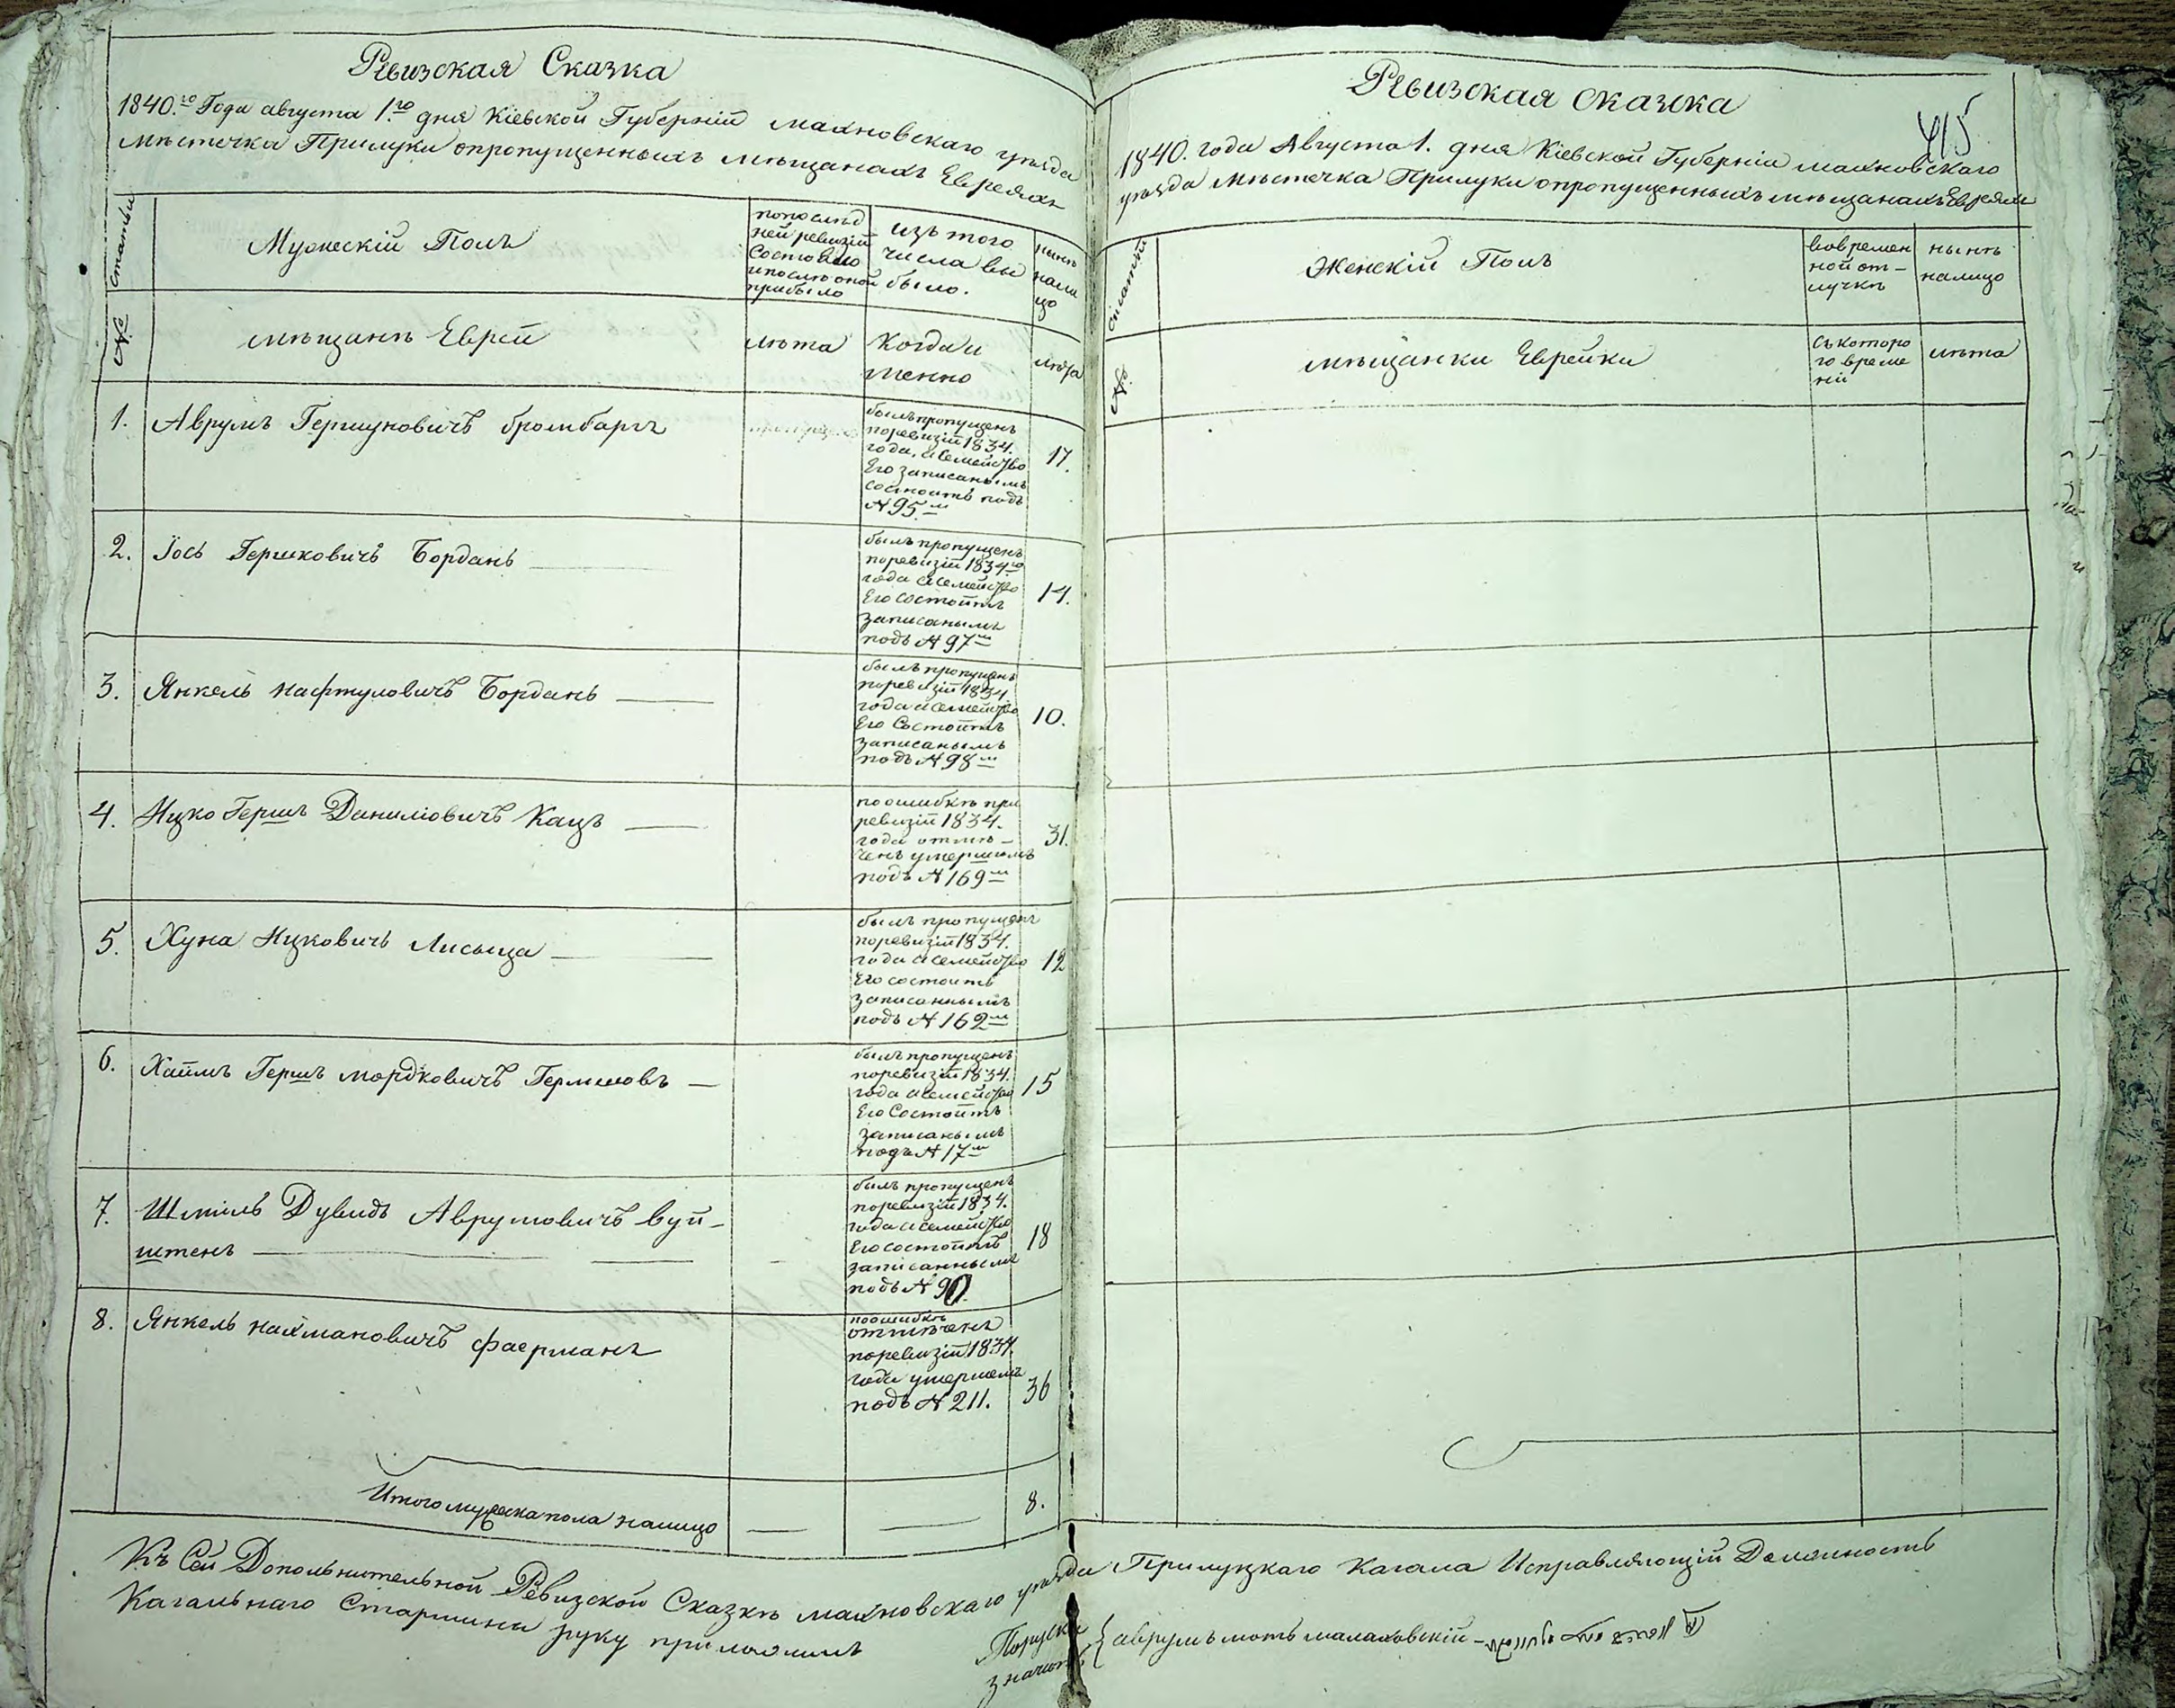 Ревизская Сказка
1840.го Года августа 1.го дня Кіевской Губерніи махновскаго уѣзда
мѣстечка Прилуки опропущенныхъ мѣщанахъ Евреяхъ
Статьи
Мужескій Полъ
попослѣд
ней ревизіи
Состояло
ипослѣ оной
прибыло
изъ того
числа вы
было.
нынѣ
нали
цо
№
мѣщанѣ Еврей
лѣта
Когда и
менно
лѣта
1.
Аврумъ Гершуновичъ бромбаргъ
былъ пропущенъ
поревизіи 1834.
года, а семейство
Его записанымъ
состоитъ подъ
№ 95м
17.
2.
Іось Гершковичъ Борданъ
былъ пропущенъ
поревизіи 1834.го
года а семейство
Его состоитъ
записанымъ
подъ № 97м
14.
3.
Янкель нафтуловичъ Борданъ
былъ пропущенъ
поревизіи 1834
года а семейство
Его Состоитъ
записанымъ
подъ № 98м
10.
4.
Ицко Гершъ Даниліовичъ Кацъ
поошибкѣ при
ревизіи 1834.
года отмѣ-
ченъ умершимъ
подъ № 169м
31.
5.
Хуна Ицковичъ Лисыца
былъ пропущенъ
поревизіи 1834.
года а семейство
Его состоитъ
записаннымъ
подъ № 162м
12
6.
Хаимъ Гершъ мордковичъ Гермшовъ
былъ пропущенъ
поревизіи 1834.
года а семейство
Его Состоитъ
записанымъ
подъ № 17м
15
7.
Шмиль Дувидъ Аврумовичъ вуй-
штенъ
былъ пропущенъ
поревизіи 1834.
года а семейство
Его состоитъ
записаннымъ
подъ № 90.
18
8.
Янкель нахмановичъ фаерманъ
поошибкѣ
отмѣченъ
поревизіи 1834.
года умершемъ
подъ № 211.
36
Итого мужеска пола налицо
8.
Ревизская сказка
415
1840. года Августа 1. дня Кіевской Губерніи махновскаго
уѣзда Мѣстечка Прилуки опропущенныхъ мѣщанахъ Евреяхъ
Статьи
Женскій Полъ
вовремен
ной от-
лучкѣ
нынѣ
налицо
№
мѣщанки Еврейки
съ которо
го време
ни
лѣта
Къ Сей Дополнительной Ревизской Сказкѣ махновскаго уѣзда Прилуцкаго Кагала Исправляющій Должность
Кагальнаго Старшины руку приложилъ
Поруски
значитъ
аврумъ мотъ малаховскій